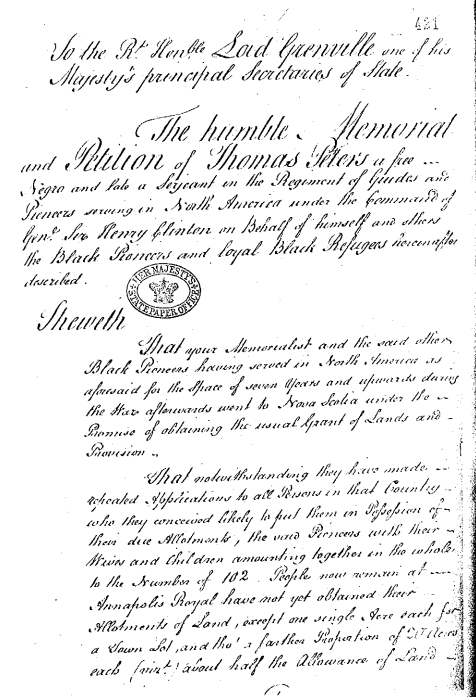 421
To the Rt. Honble. Lord Grenville one of his
Majesty's principal Secretaries of State.
The humble Memorial
and Petition of Thomas Peters a free
Negro and late a Serjeant in the Regiment of Guides and
Pioneers serving in North America under the Command of
Genl. Sir Henry Clinton on Behalf of himself and others
the Black Pioneers and loyal Black Refugees hereinafter
described.
HER MAJESTY'S
STATE PAPER OFFICE
Sheweth
That your Memorialist and the said other
Black Pioneers having served in North America as
aforesaid for the space of seven Years and upwards during
the War afterwards went to Nova Scotia under the
Promise of obtaining the usual Grant of Lands and
Provision.
That notwithstanding they have made
repeated Applications to all Persons in that Country
who they conceived likely to put them in Possession of
their due Allotments, the said Pioneers with their
Wives and Children amounting together in the whole
to the Number of 102 People now remain at
Annapolis Royal have not yet obtained their
Allotments of Land except one single Acre each for
a Town Lot and tho' a farther Proportion of 20 Acres
each (vizt.) about half the Allowance of Land